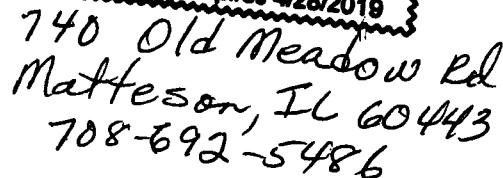 4/28/2019
740 Old Meadow Rd
Matteson, IL 60443
708-692-5486